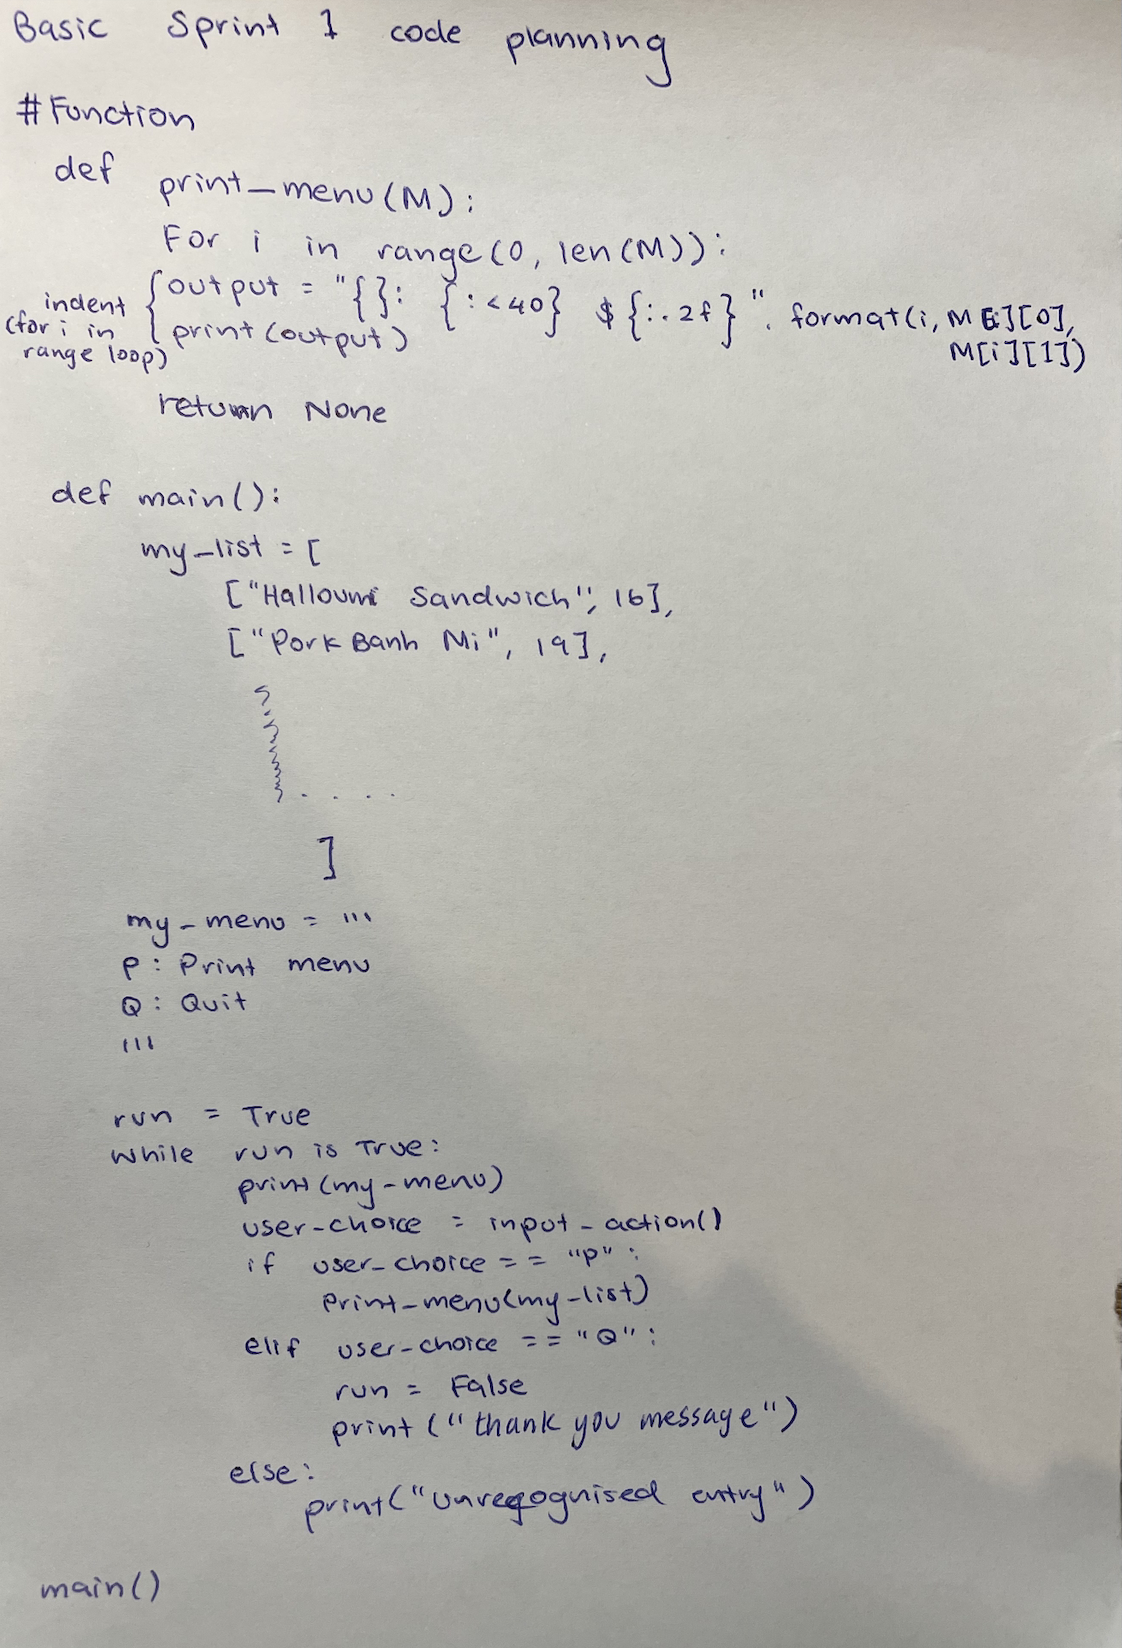 Basic Sprint 1 code planning
# Function
def print_menu(M):
For i in range(0, len(M)):
indent (for i in range loop)
output = "{}: {:<40} ${:.2f}". format(i, M[i][0],
M[i][1])
print(output)
return None
def main():
my_list = [
["Halloumi Sandwich", 16],
["Pork Banh Mi", 19],
. . . .
]
my_menu = '''
P: Print menu
Q: Quit
'''
run = True
while run is True:
print(my_menu)
user_choice = input_action()
if user_choice == "P":
print_menu(my_list)
elif user_choice == "Q":
run = False
print("thank you message")
else:
print("unregognised entry")
main()